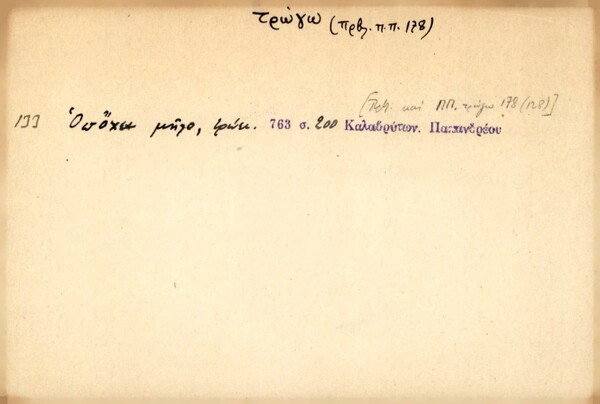 τρώγω (πρβ. π.π. 178)
[Πρβ. καὶ ΠΠ. τρώγω 178 (128)]
133 Ὁπὄχει μῆλο, τρώει. 763 σ. 200 Καλαβρύτων. Παπανδρέου